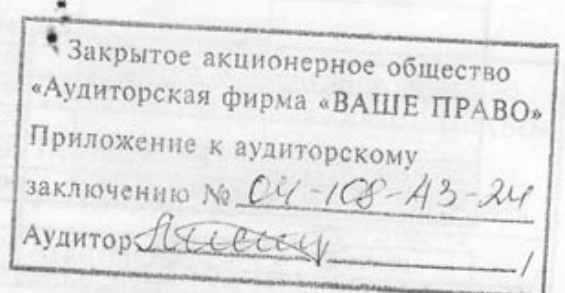 Закрытое акционерное общество
«Аудиторская фирма «ВАШЕ ПРАВО»
Приложение к аудиторскому
заключению № 04-108-АЗ-24
Аудитор /